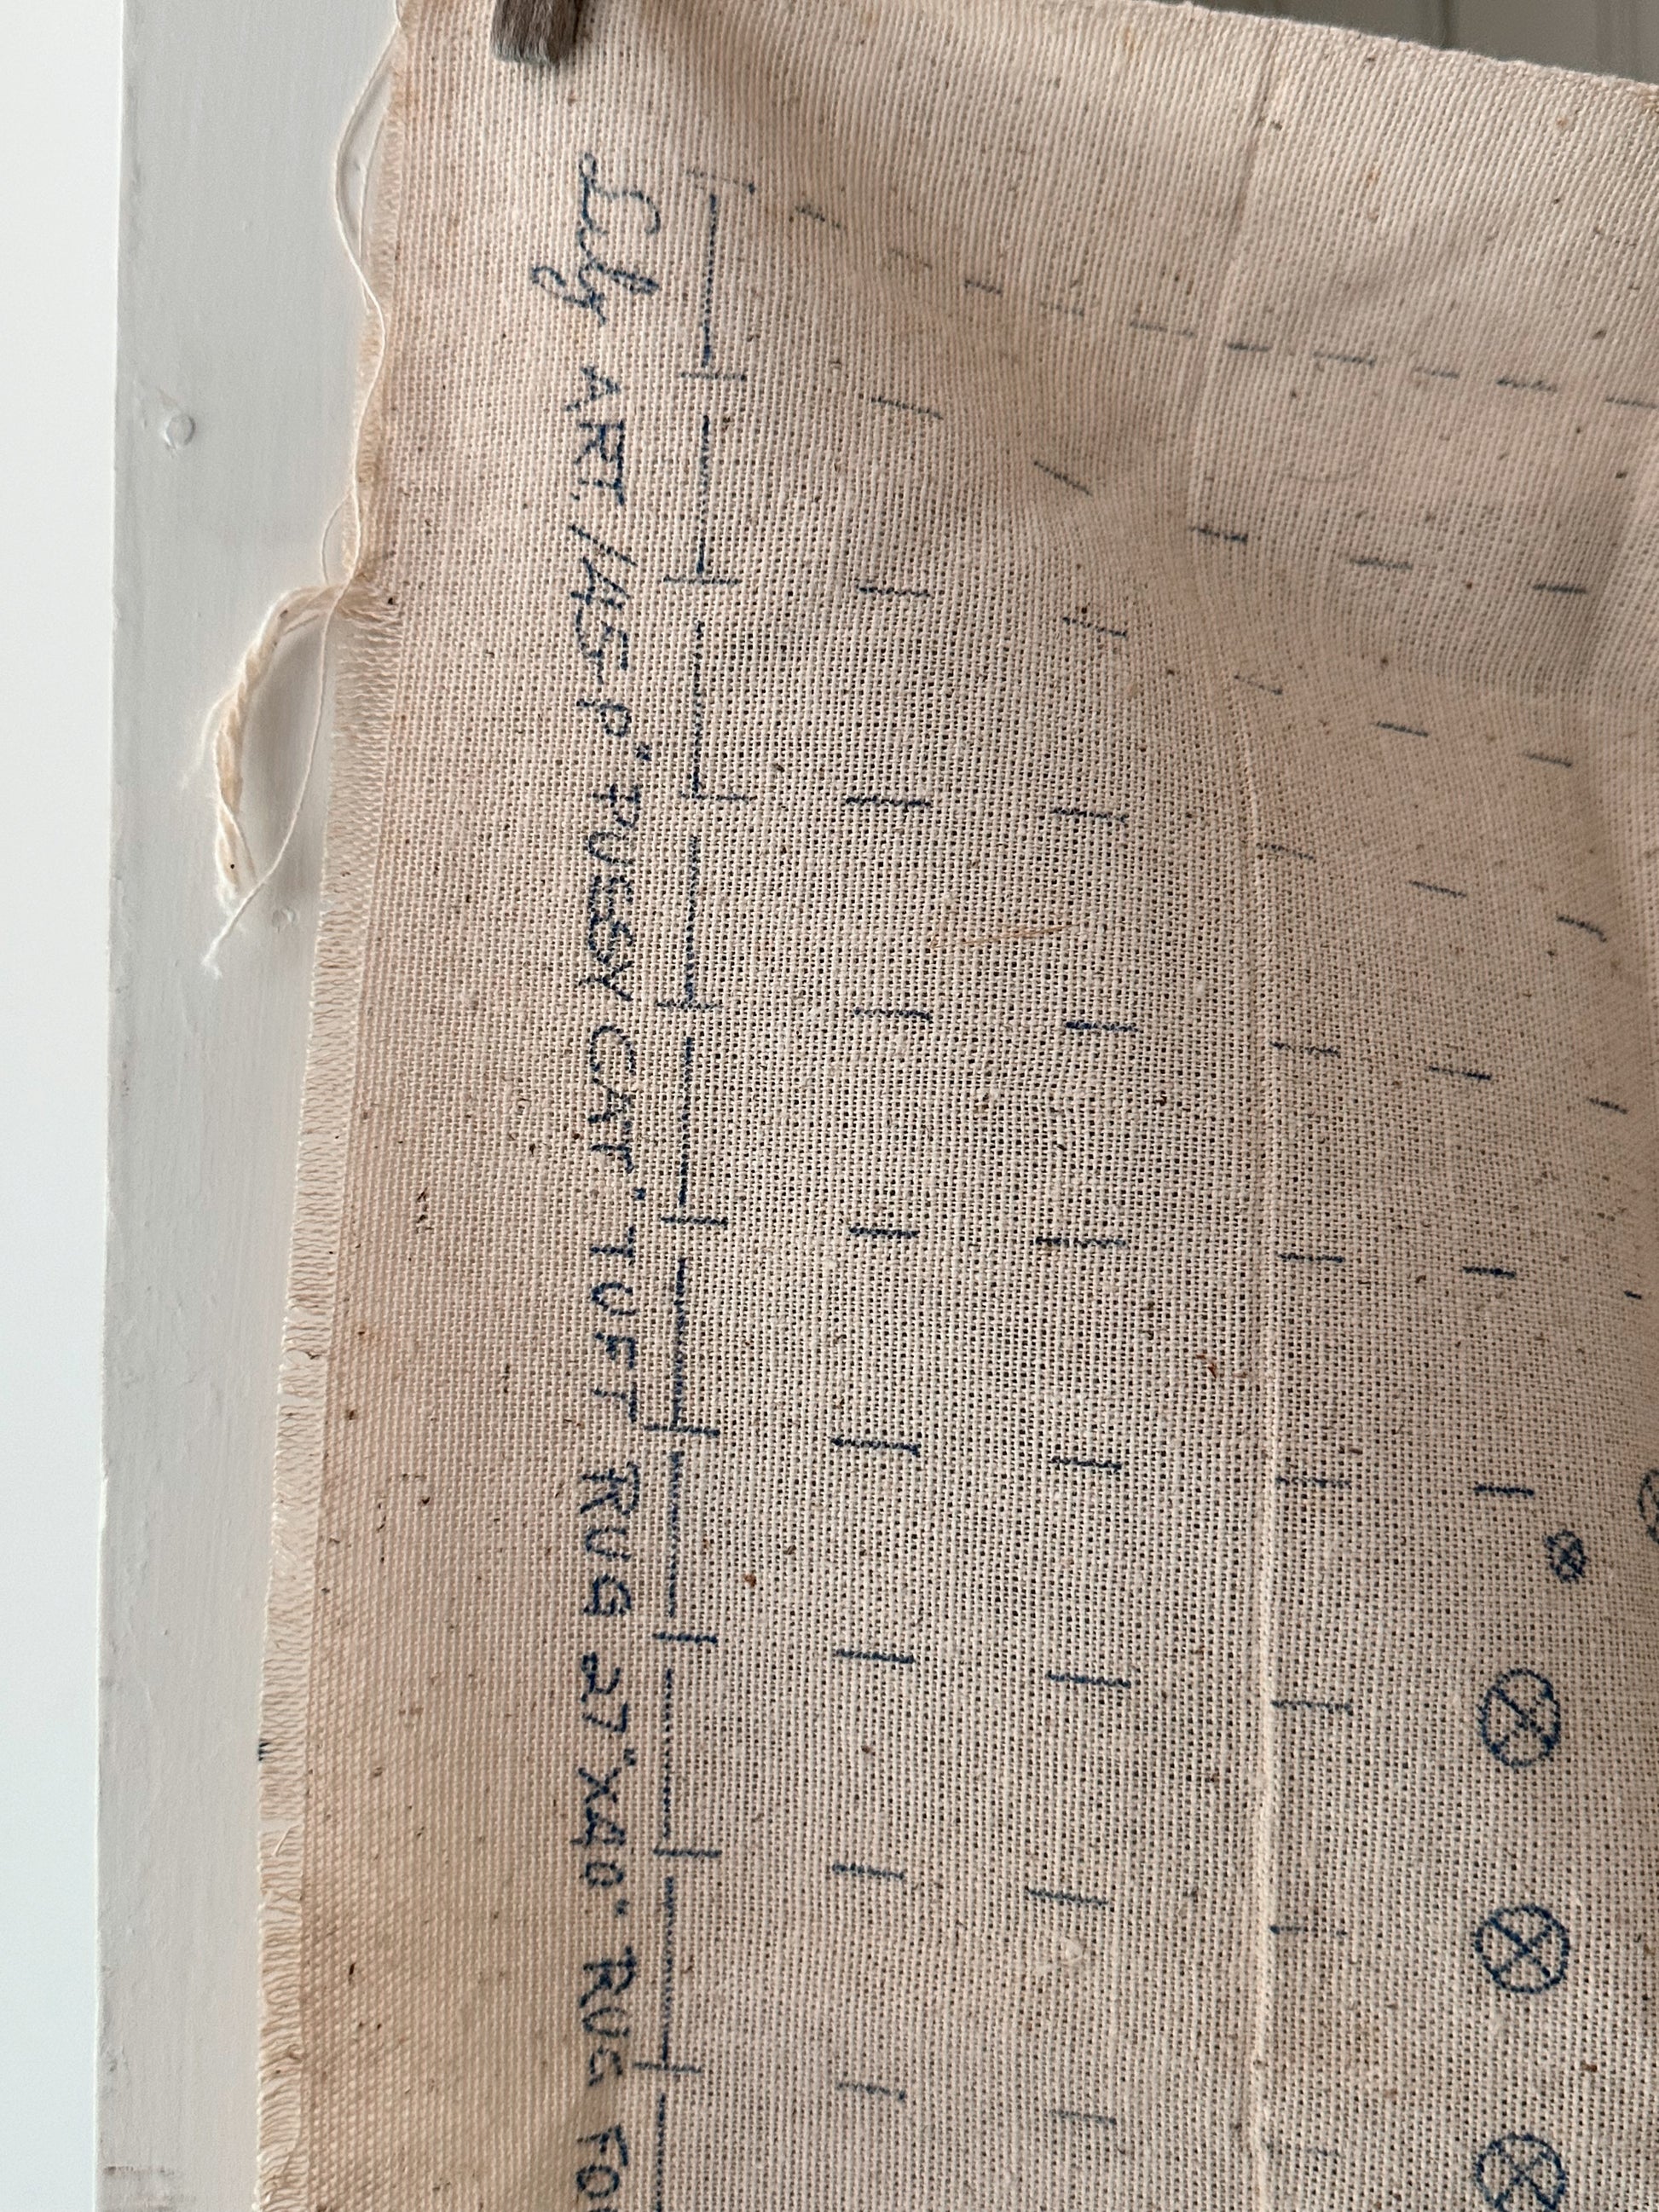 Lily ART. 145-P "PUSSY CAT" TUFT RUG 27"X40". RUG